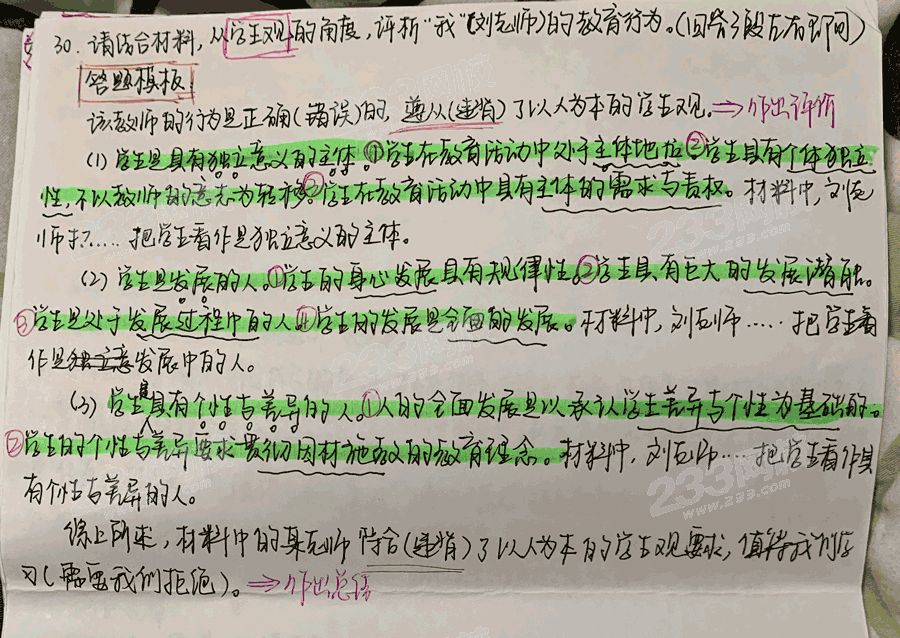 30. 请结合材料，从学生观的角度，评析“我”(刘老师)的教育行为。(回答3段左右即可)
答题模板
该教师的行为是正确(错误)的，遵从(违背)了以人为本的学生观。⇒作出评价
(1) 学生是具有独立意义的主体。①学生在教育活动中处于主体地位②学生具有个体独立
性，不以教师的意志为转移③学生在教育活动中具有主体的需求与责权。材料中，刘老
师 …… 把学生看作是独立意义的主体。
(2) 学生是发展的人。①学生的身心发展具有规律性。②学生具有巨大的发展潜能。
③学生是处于发展过程中的人④学生的发展是全面的发展。材料中，刘老师 …… 把学生看
作是发展中的人。
(3) 学生是具有个性与差异的人。①人的全面发展是以承认学生差异与个性为基础的。
②学生的个性与差异要求贯彻因材施教的教育理念。材料中，刘老师 …… 把学生看作具
有个性与差异的人。
综上所求，材料中的某老师符合(违背)了以人为本的学生观要求，值得我们学
习(需要我们拒绝)。⇒作出总结
233网校
www.233.com